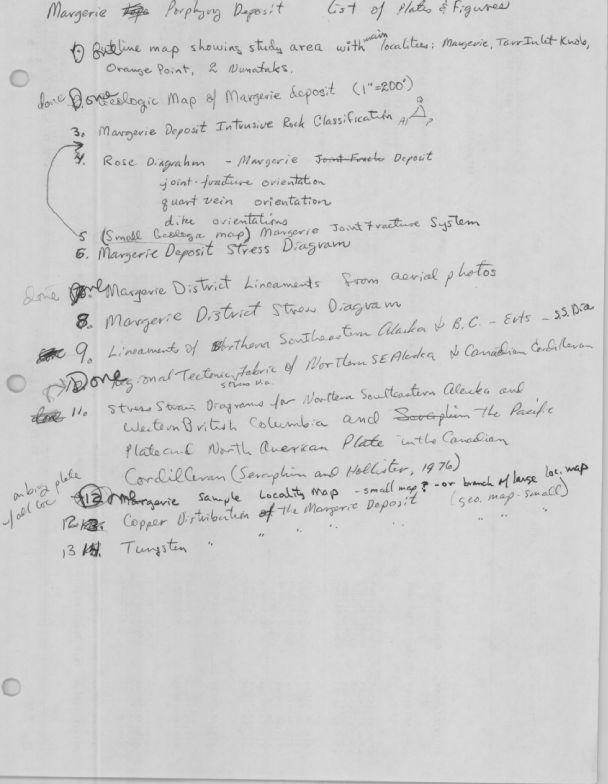 Margerie Porphyry Deposit List of Plates & Figures
1) Outline map showing study area with main localities: Margerie, Tarr Inlet Knob,
Orange Point, 2 Nunataks.
done Done Geologic Map of Margerie deposit (1"=200')
3. Margerie Deposit Intrusive Rock Classification A P
4. Rose Diagrahm - Margerie Joint Fract Deposit
joint-fracture orientation
quart vein orientation
dike orientations
5 (Small Geologic map) Margerie Joint Fracture System
6. Margerie Deposit Stress Diagram
done Done Margerie District Lineaments from aerial photos
8. Margerie District Stress Diagram
9. Lineaments of Northern Southeastern Alaska & B.C. - Evts - S.S. Dia
Done Regional Tectonic fabric of Northern SE Alaska & Canadian Cordilleran
stress dia.
11. Stress Strain Diagrams for Northern Southeastern Alaska and
Western British Columbia and Seraphim the Pacific
Plate and North American Plate in the Canadian
Cordilleran (Seraphim and Hollister, 1976)
on big plate
w/ all loc
12 Margerie sample Locality Map - small map? - or branch of large loc. map
12 Copper Distribution of the Margerie Deposit (geo. map - small)
13 14. Tungsten " " " " " " "